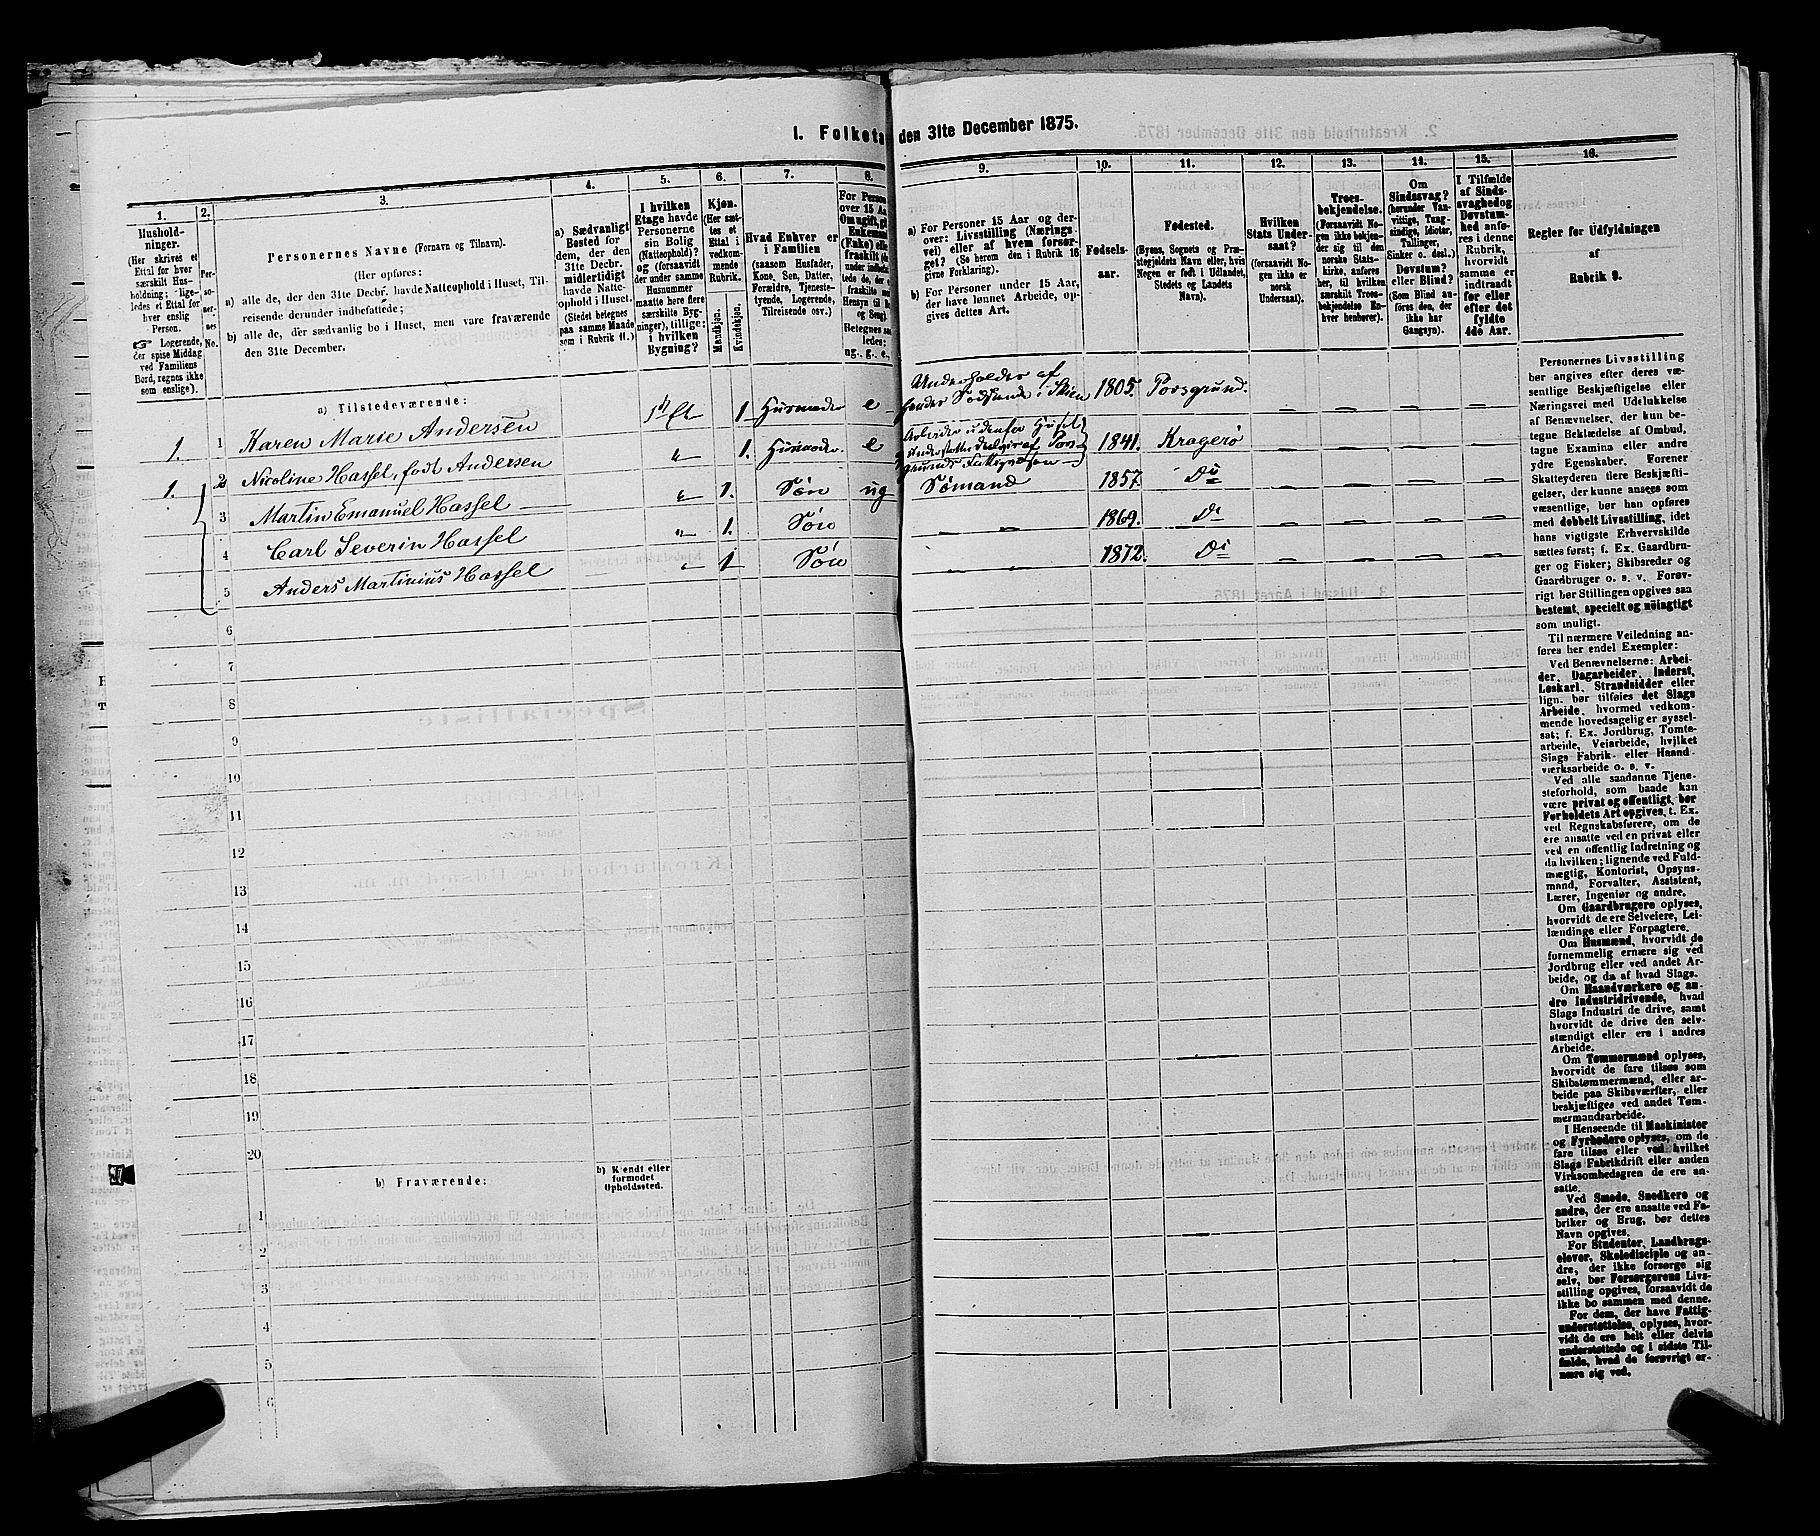 1. Folketæ den 31te December 1875.
1.
Hushold-
ninger.
(Her skrives et
Ettal for hver
særskilt Hus-
holdning; lige-
ledes et Ettal for
hver enslig
Person.
☞ Logerende,
der spise Middag
ved Familiens
Bord, regnes ikke
som enslige).
2.
Per-
so-
ner-
nes
No.
3.
Personernes Navne (Fornavn og Tilnavn).
(Her opføres:
a) alle de, der den 31te Decbr. havde Natteophold i Huset, Til-
reisende derunder indbefattede;
b) alle de, der sædvanlig bo i Huset, men vare fraværende
den 31te December.
4.
a) Sædvanligt
Bosted for
dem, der den
31te Decbr.
midlertidigt
havde Natte-
ophold i Huset.
(Stedet betegnes
paa samme Maade
som i Rubrik 11.)
5.
I hvilken
Etage havde
Personerne
sin Bolig
(Natteophold)?
og (forsaavidt
der under samme
Husnummer
maatte høre flere
særskilte Byg-
ninger), tillige:
i hvilken
Bygning?
6.
Kjøn.
(Her sæt-
tes et
Ettal i
vedkom-
mende
Rubrik.
Mandkjøn.
Kvindekjøn.
7.
Hvad Enhver er
i Familien
(saasom Husfader,
Kone, Søn, Datter,
Forældre, Tjeneste-
tyende, Logerende,
Tilreisende osv.)
8.
For Person
over 15 Aa
Om ugift, gi
Enkeman
(Enke) elle
fraskilt (de
under indbefat-
tede de, der e
fraskilte me
Hensyn til Bo
og Seng).
Betegnes saa
ledes:
ug., g., e.,
9.
a) For Personer 15 Aar og der-
over: Livsstilling (Nærings-
vei) eller af hvem forsør-
get? (Se herom den i Rubrik 16
givne Forklaring).
b) For Personer under 15 Aar,
der have lønnet Arbeide, op-
gives dettes Art.
10.
Fødsels-
aar.
11.
Fødested.
(Byens, Sognets og Præ-
stegjeldets Navn eller, hvis
Nogen er født i Udlandet,
Stedets og Landets
Navn).
12.
Hvilken
Stats Under-
saat?
(forsaavidt No-
gen ikke er
norsk
Undersaat).
13.
Troes-
bekjendelse.
(Forsaavidt No-
gen ikke bekjen-
der sig til den
norske Stats-
kirke, anføres
her, til hvilken
særskilt Troes-
bekjendelse En-
hver henhører).
14.
Om
Sindssvag?
(herunder Van-
vittige, Tung-
sindige, Idioter,
Tullinger,
Sinker o. desl.).
Døvstum?
eller Blind?
(Som Blind an-
føres den, der
ikke har
Gangsyn).
15.
I Tilfælde
af Sinds-
svaghed og
Døvstum-
hed anfø-
res i denne
Rubrik,
hvorvidt
samme er
indtraadt
før eller
efter det
fyldte
4de Aar.
16.
Regler for Udfyldningen
af
Rubrik 9.
a) Tilstedeværende:
1. 1 Karen Marie Andersen 1st Et 1. Husmoder e Underholdes af Sødskende i Skien 1805. Porsgrund.
1. 2 Nicoline Hassel, født Andersen " 1. Husmoder e Arbeider udenfor Huset understøttes delvis af Porsgrunds Fattigvæsen 1841. Kragerø
3 Martin Emanuel Hassel " 1. Søn ug Sømand 1857. Do
4 Carl Severin Hassel " 1. Søn 1869. Do
5 Anders Martinius Hassel " 1 Søn 1872. Do
6
7
8
9
10
11
12
13
14
15
16
17
18
19
20
b) Fraværende:
b) Kjendt eller
formodet
Opholdssted.
1
2
3
4
5
6
Personernes Livsstilling
bør angives efter deres væ-
sentlige Beskjæftigelse eller
Næringsvei med Udelukkelse
af Benævnelser, der kun be-
tegne Beklædelse af Ombud,
tagne Examina eller andre
ydre Egenskaber. Forener
Skatteyderen flere Beskjæfti-
gelser, der kunne ansees som
væsentlige, bør han opføres
med dobbelt Livsstilling, idet
hans vigtigste Erhvervskilde
sættes først; f. Ex. Gaardbru-
ger og Fisker; Skibsreder og
Gaardbruger o. s. v. Forøv-
rigt bør Stillingen opgives saa
bestemt, specielt og nöiagtigt
som muligt.
Til nærmere Veiledning an-
føres her endel Exempler:
Ved Benævnelserne: Arbei-
der, Dagarbeider, Inderst,
Løskarl, Strandsidder eller
lign. bør tilføies det Slags
Arbeide, hvormed vedkom-
mende hovedsagelig er syssel-
sat; f. Ex. Jordbrug, Tomte-
arbeide, Veiarbeide, hvilket
Slags Fabrik- eller Haand-
værksarbeide o. s. v.
Ved alle saadanne Tjene-
steforhold, som baade kan
være privat og offentligt, bør
Forholdets Art opgives, t. Ex.
ved Regnskabsførere, om de
ere ansatte ved en privat eller
ved en offentlig Indretning og
da hvilken; lignende ved Fuld-
mægtig, Kontorist, Opsyns-
mand, Forvalter, Assistent,
Lærer, Ingeniør og andre.
Om Gaardbrugere oplyses,
hvorvidt de ere Selveiere, Lei-
lændinge eller Forpagtere.
Om Husmænd, hvorvidt de
fornemmelig ernære sig ved
Jordbrug eller ved andet Ar-
beide, og da af hvad Slags.
Om Haandværkere og an-
dre Industridrivende, hvad
Slags Industri de drive, samt
hvorvidt de drive den selv-
stændigt eller ere i andres
Arbeide.
Om Tømmermænd oplyses,
hvorvidt de fare tilsøs som
Skibstømmermænd, eller ar-
beide paa Skibsværfter, eller
beskjæftiges ved andet Tøm-
mermandsarbeide.
I Henseende til Maskinister
og Fyrbødere oplyses, om de
fare tilsøs eller ved hvilket
Slags Fabrikdrift eller anden
Virksomhedsgren de ere an-
satte.
Ved Smede, Snedkere og
andre, der ere ansatte ved Fa-
briker og Brug, bør dettes
Navn opgives.
For Studenter, Landbrugs-
elever, Skoledisciple og an-
dre, der ikke forsørge sig
selv, bør Forsørgerens Livs-
stilling opgives, forsaavidt de
ikke bo sammen med denne.
For dem, der have Fattig-
understøttelse, oplyses, hvor-
vidt de ere helt eller delvis
understøttede og i sidste Til-
fælde, hvad de forøvrigt er-
nære sig ved.